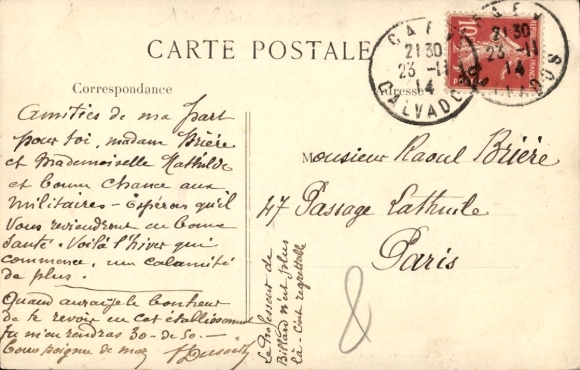 CARTE POSTALE
Correspondance
Adresse
CAEN
21 30
23 -11
14
CALVADOS
CAEN
21 30
23 -11
14
CALVADOS
10
Amitiés de ma part
pour toi, madame Brière
et Mademoiselle Mathilde
et bonne chance aux
militaires - Espérons qu'il
Vous reviendront en bonne
santé. Voilà l'hiver qui
commence, une calamité
de plus.
Quand aurai je le bonheur
de te revoir en cet établissement
tu m'en rendras 30 - de 50 -
bons poignée de
Le Professeur de
Billard n'est plus
là - c'est regrettable
Monsieur Raoul Brière
47 Passage Lathuile
Paris